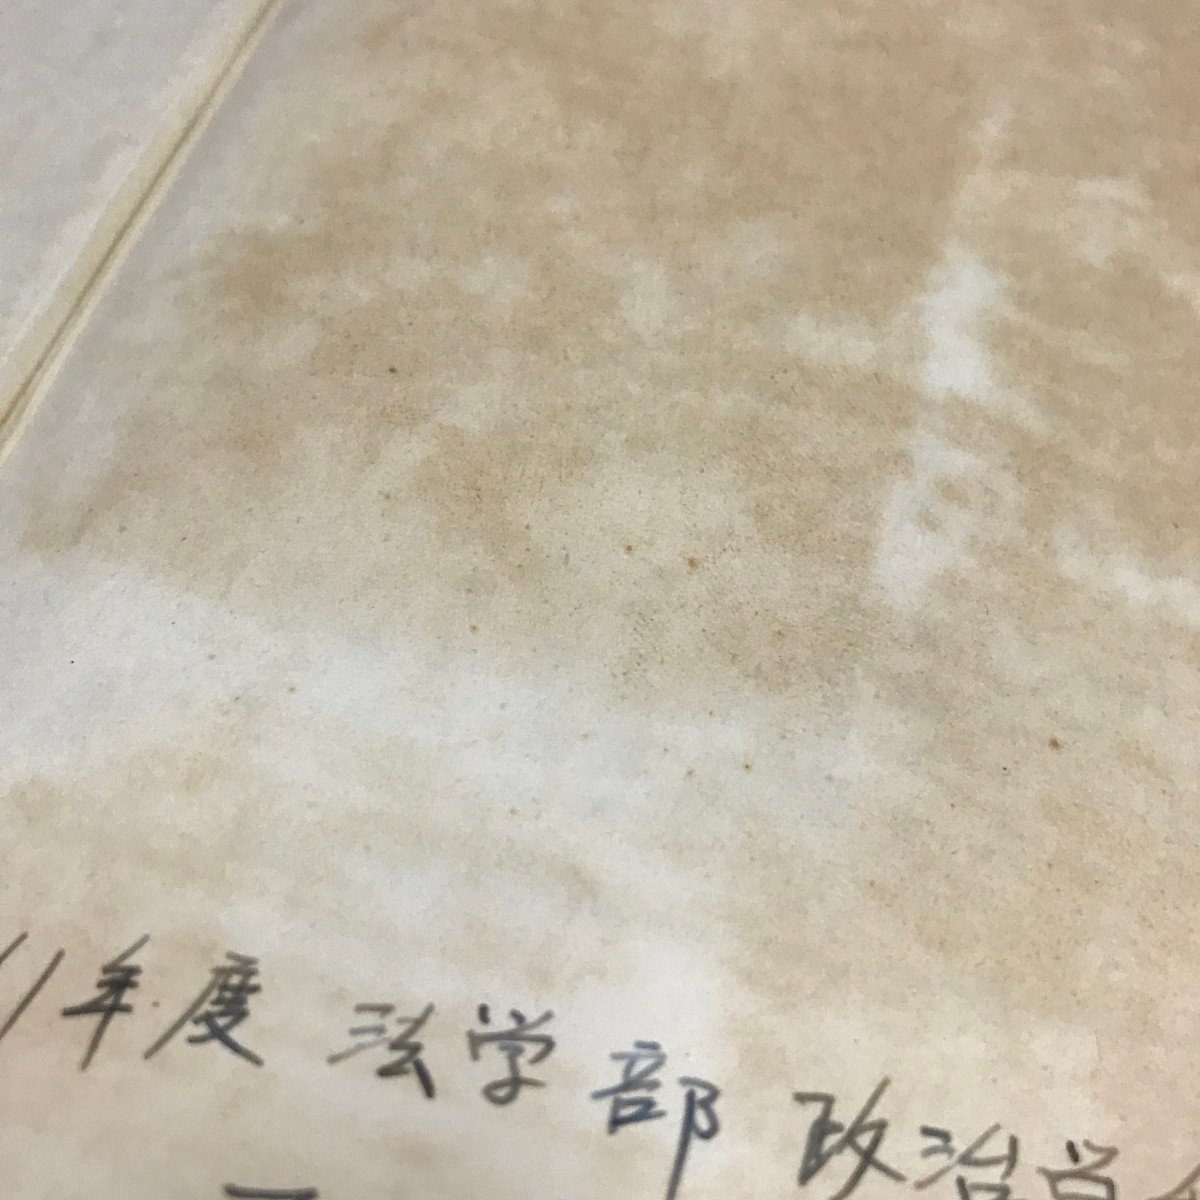 11年度 法学部 政治学